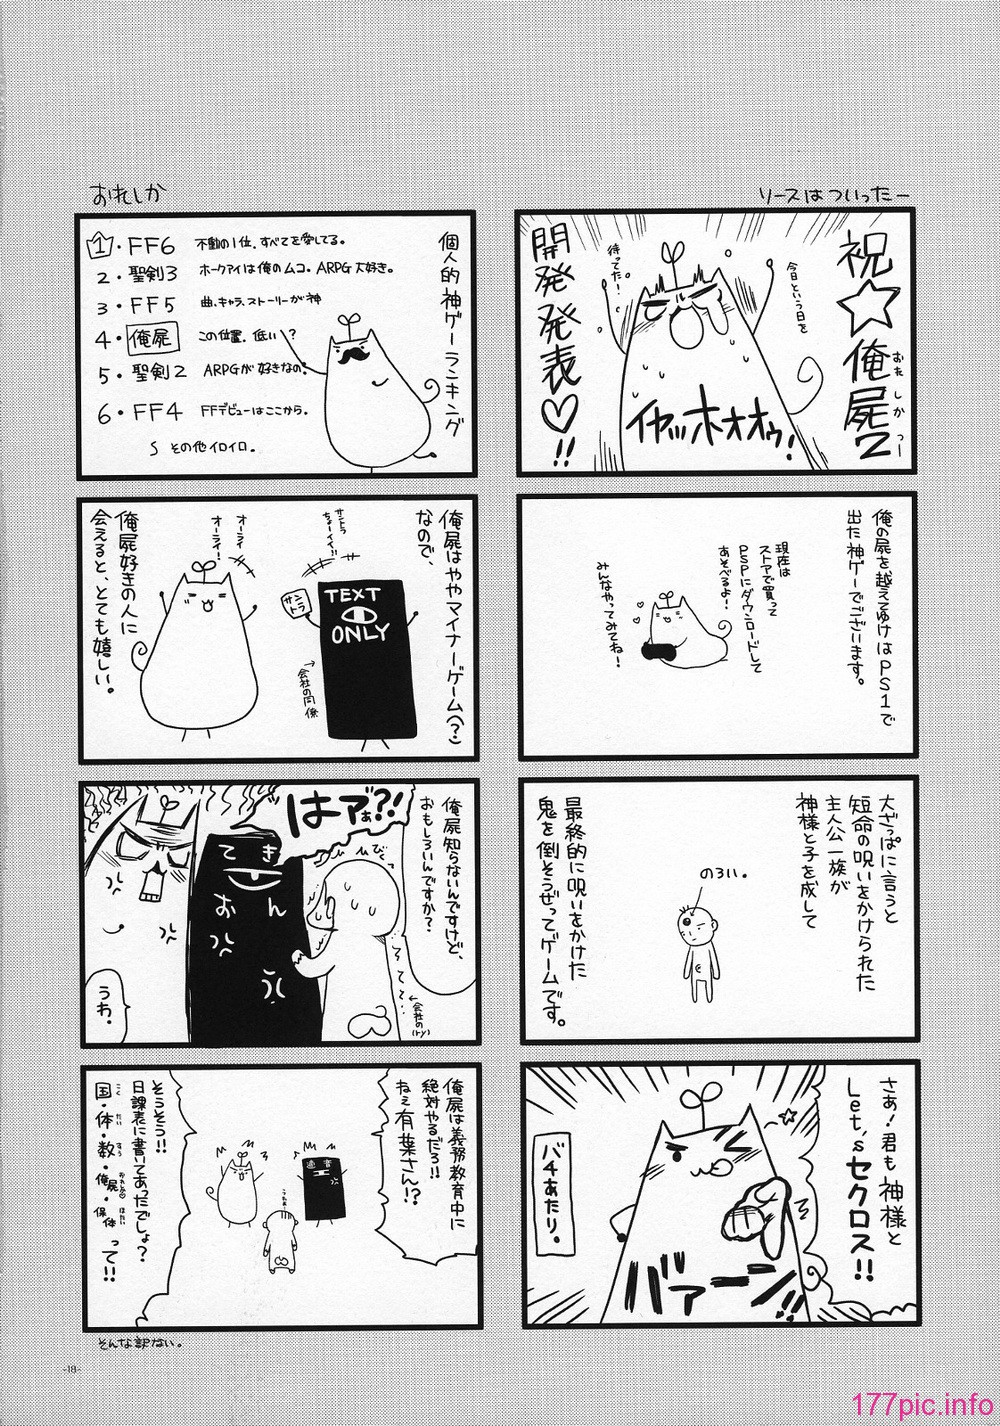 ソースはついったー
祝☆俺屍2
おれしかつー
開発発表♡!!
今日という日を
待ってた!
イヤッホオオゥ!
俺の屍を越えてゆけはPS1で
出た神ゲーでございます。
現在は
ストアで買って
PSPにダウンロードして
あそべるよ!
みんなやってみてね!
大ざっぱに言うと
短命の呪いをかけられた
主人公一族が
神様と子を成して
のろい。
最終的に呪いをかけた
鬼を倒そうぜってゲームです。
さぁ!君も神様と
Let'sセクロス!!
バチあたり。
バァーン
おれしか
個人的神ゲーランキング
1・FF6 不動の1位、すべてを愛してる。
2・聖剣3 ホークアイは俺のムコ。ARPG大好き。
3・FF5 曲、キャラ、ストーリーが神
4・俺屍 この位置、低い?
5・聖剣2 ARPGが好きなの。
6・FF4 FFデビューはここから。
その他イロイロ。
俺屍はややマイナーゲーム(?)
なので、
サントラ
ちょーイイ!!
サントラ
TEXT
ONLY
←会社の同僚
オーライ
オーライ!
俺屍好きの人に
会えると、とても嬉しい。
俺屍知らないんですけど、
おもしろいんですか?
はァ゙ぁ?!
びくっ
てき
おん
←会社の(ry)
うわ。
俺屍は義務教育中に
絶対やるだろ!!
ねえ有葉さん!?
そうそう!!
日課表に書いてあったでしょ?
国・体・数・俺屍・保体って!!
こく たい すう おれしか ほたい
そんな訳ない。
-18-
177pic.info